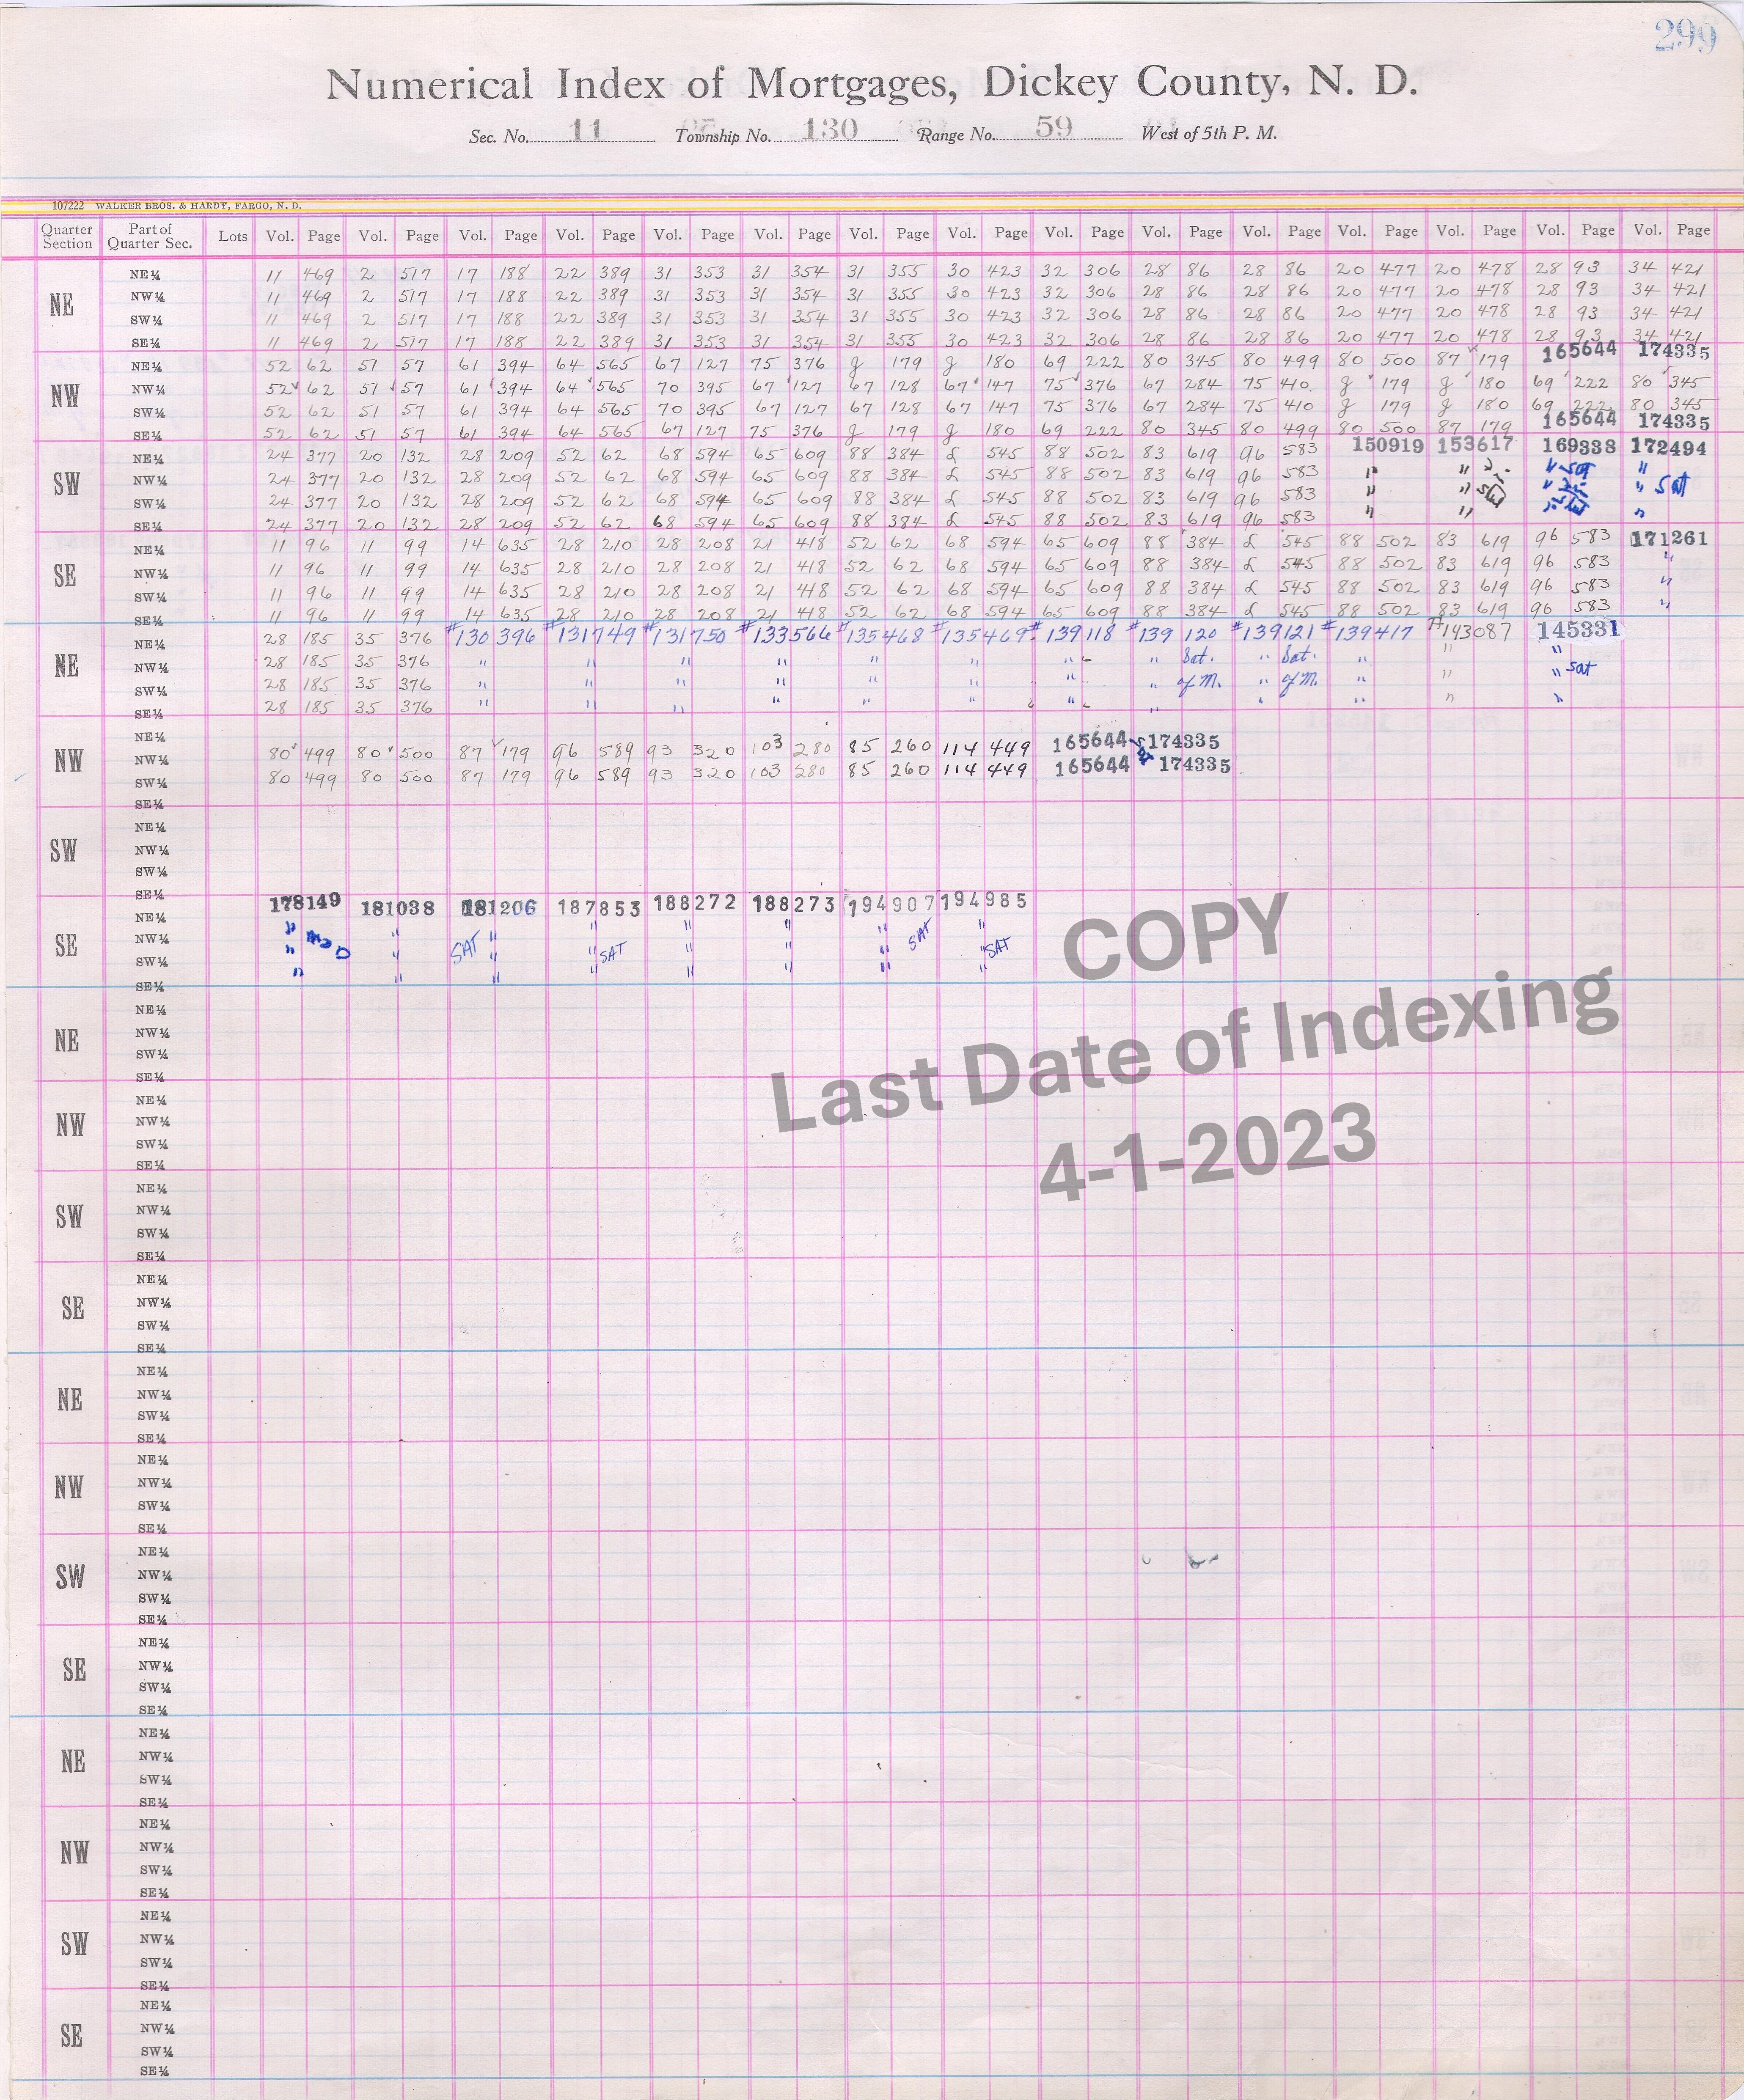 299
Numerical Index of Mortgages, Dickey County, N. D.
Sec. No. 11 Township No. 130 Range No. 59 West of 5th P. M.
107222 WALKER BROS. & HARDY, FARGO, N. D.
Quarter Section Part of Quarter Sec. Lots Vol. Page Vol. Page Vol. Page Vol. Page Vol. Page Vol. Page Vol. Page Vol. Page Vol. Page Vol. Page Vol. Page Vol. Page Vol. Page Vol. Page Vol. Page
NE
NE¼ 11 469 2 517 17 188 22 389 31 353 31 354 31 355 30 423 32 306 28 86 28 86 20 477 20 478 28 93 34 421
NW¼ 11 469 2 517 17 188 22 389 31 353 31 354 31 355 30 423 32 306 28 86 28 86 20 477 20 478 28 93 34 421
SW¼ 11 469 2 517 17 188 22 389 31 353 31 354 31 355 30 423 32 306 28 86 28 86 20 477 20 478 28 93 34 421
SE¼ 11 469 2 517 17 188 22 389 31 353 31 354 31 355 30 423 32 306 28 86 28 86 20 477 20 478 28 93 34 421
NW
NE¼ 52 62 51 57 61 394 64 565 67 127 75 376 g 179 g 180 69 222 80 345 80 499 80 500 87 179 165644 174335
NW¼ 52 62 51 57 61 394 64 565 70 395 67 127 67 128 67 147 75 376 67 284 75 410 g 179 g 180 69 222 80 345
SW¼ 52 62 51 57 61 394 64 565 70 395 67 127 67 128 67 147 75 376 67 284 75 410 g 179 g 180 69 222 80 345
SE¼ 52 62 51 57 61 394 64 565 67 127 75 376 g 179 g 180 69 222 80 345 80 499 80 500 87 179 165644 174335
SW
NE¼ 24 377 20 132 28 209 52 62 68 594 65 609 88 384 L 545 88 502 83 619 96 583 150919 153617 169338 172494
NW¼ 24 377 20 132 28 209 52 62 68 594 65 609 88 384 L 545 88 502 83 619 96 583 " " " Sat "
SW¼ 24 377 20 132 28 209 52 62 68 594 65 609 88 384 L 545 88 502 83 619 96 583 " " " " Sat
SE¼ 24 377 20 132 28 209 52 62 68 594 65 609 88 384 L 545 88 502 83 619 96 583 " " " "
SE
NE¼ 11 96 11 99 14 635 28 210 28 208 21 418 52 62 68 594 65 609 88 384 L 545 88 502 83 619 96 583 171261
NW¼ 11 96 11 99 14 635 28 210 28 208 21 418 52 62 68 594 65 609 88 384 L 545 88 502 83 619 96 583 "
SW¼ 11 96 11 99 14 635 28 210 28 208 21 418 52 62 68 594 65 609 88 384 L 545 88 502 83 619 96 583 "
SE¼ 11 96 11 99 14 635 28 210 28 208 21 418 52 62 68 594 65 609 88 384 L 545 88 502 83 619 96 583 "
NE
NE¼ 28 185 35 376 #130 396 #131749 #131750 #133566 #135468 #135469 #139118 #139 120 #139121 #139417 #143087 145331
NW¼ 28 185 35 376 " " " " " " " " Sat. " Sat. " " "
SW¼ 28 185 35 376 " " " " " " " " of M. " of M. " " " Sat
SE¼ 28 185 35 376 " " " " " " " " " " " "
NW
NE¼
NW¼ 80 499 80 500 87 179 96 589 93 320 103 280 85 260 114 449 165644 174335
SW¼ 80 499 80 500 87 179 96 589 93 320 103 280 85 260 114 449 165644 174335
SE¼
SW
NE¼
NW¼
SW¼
SE¼
SE
NE¼ 178149 181038 181206 187853 188272 188273 194907 194985
NW¼ " " " " " " SAT "
SW¼ " " SAT " " SAT " " " " SAT
SE¼ " " " " " " " "
COPY
Last Date of Indexing
4-1-2023
NE
NE¼
NW¼
SW¼
SE¼
NW
NE¼
NW¼
SW¼
SE¼
SW
NE¼
NW¼
SW¼
SE¼
SE
NE¼
NW¼
SW¼
SE¼
NE
NE¼
NW¼
SW¼
SE¼
NW
NE¼
NW¼
SW¼
SE¼
SW
NE¼
NW¼
SW¼
SE¼
SE
NE¼
NW¼
SW¼
SE¼
NE
NE¼
NW¼
SW¼
SE¼
NW
NE¼
NW¼
SW¼
SE¼
SW
NE¼
NW¼
SW¼
SE¼
SE
NE¼
NW¼
SW¼
SE¼